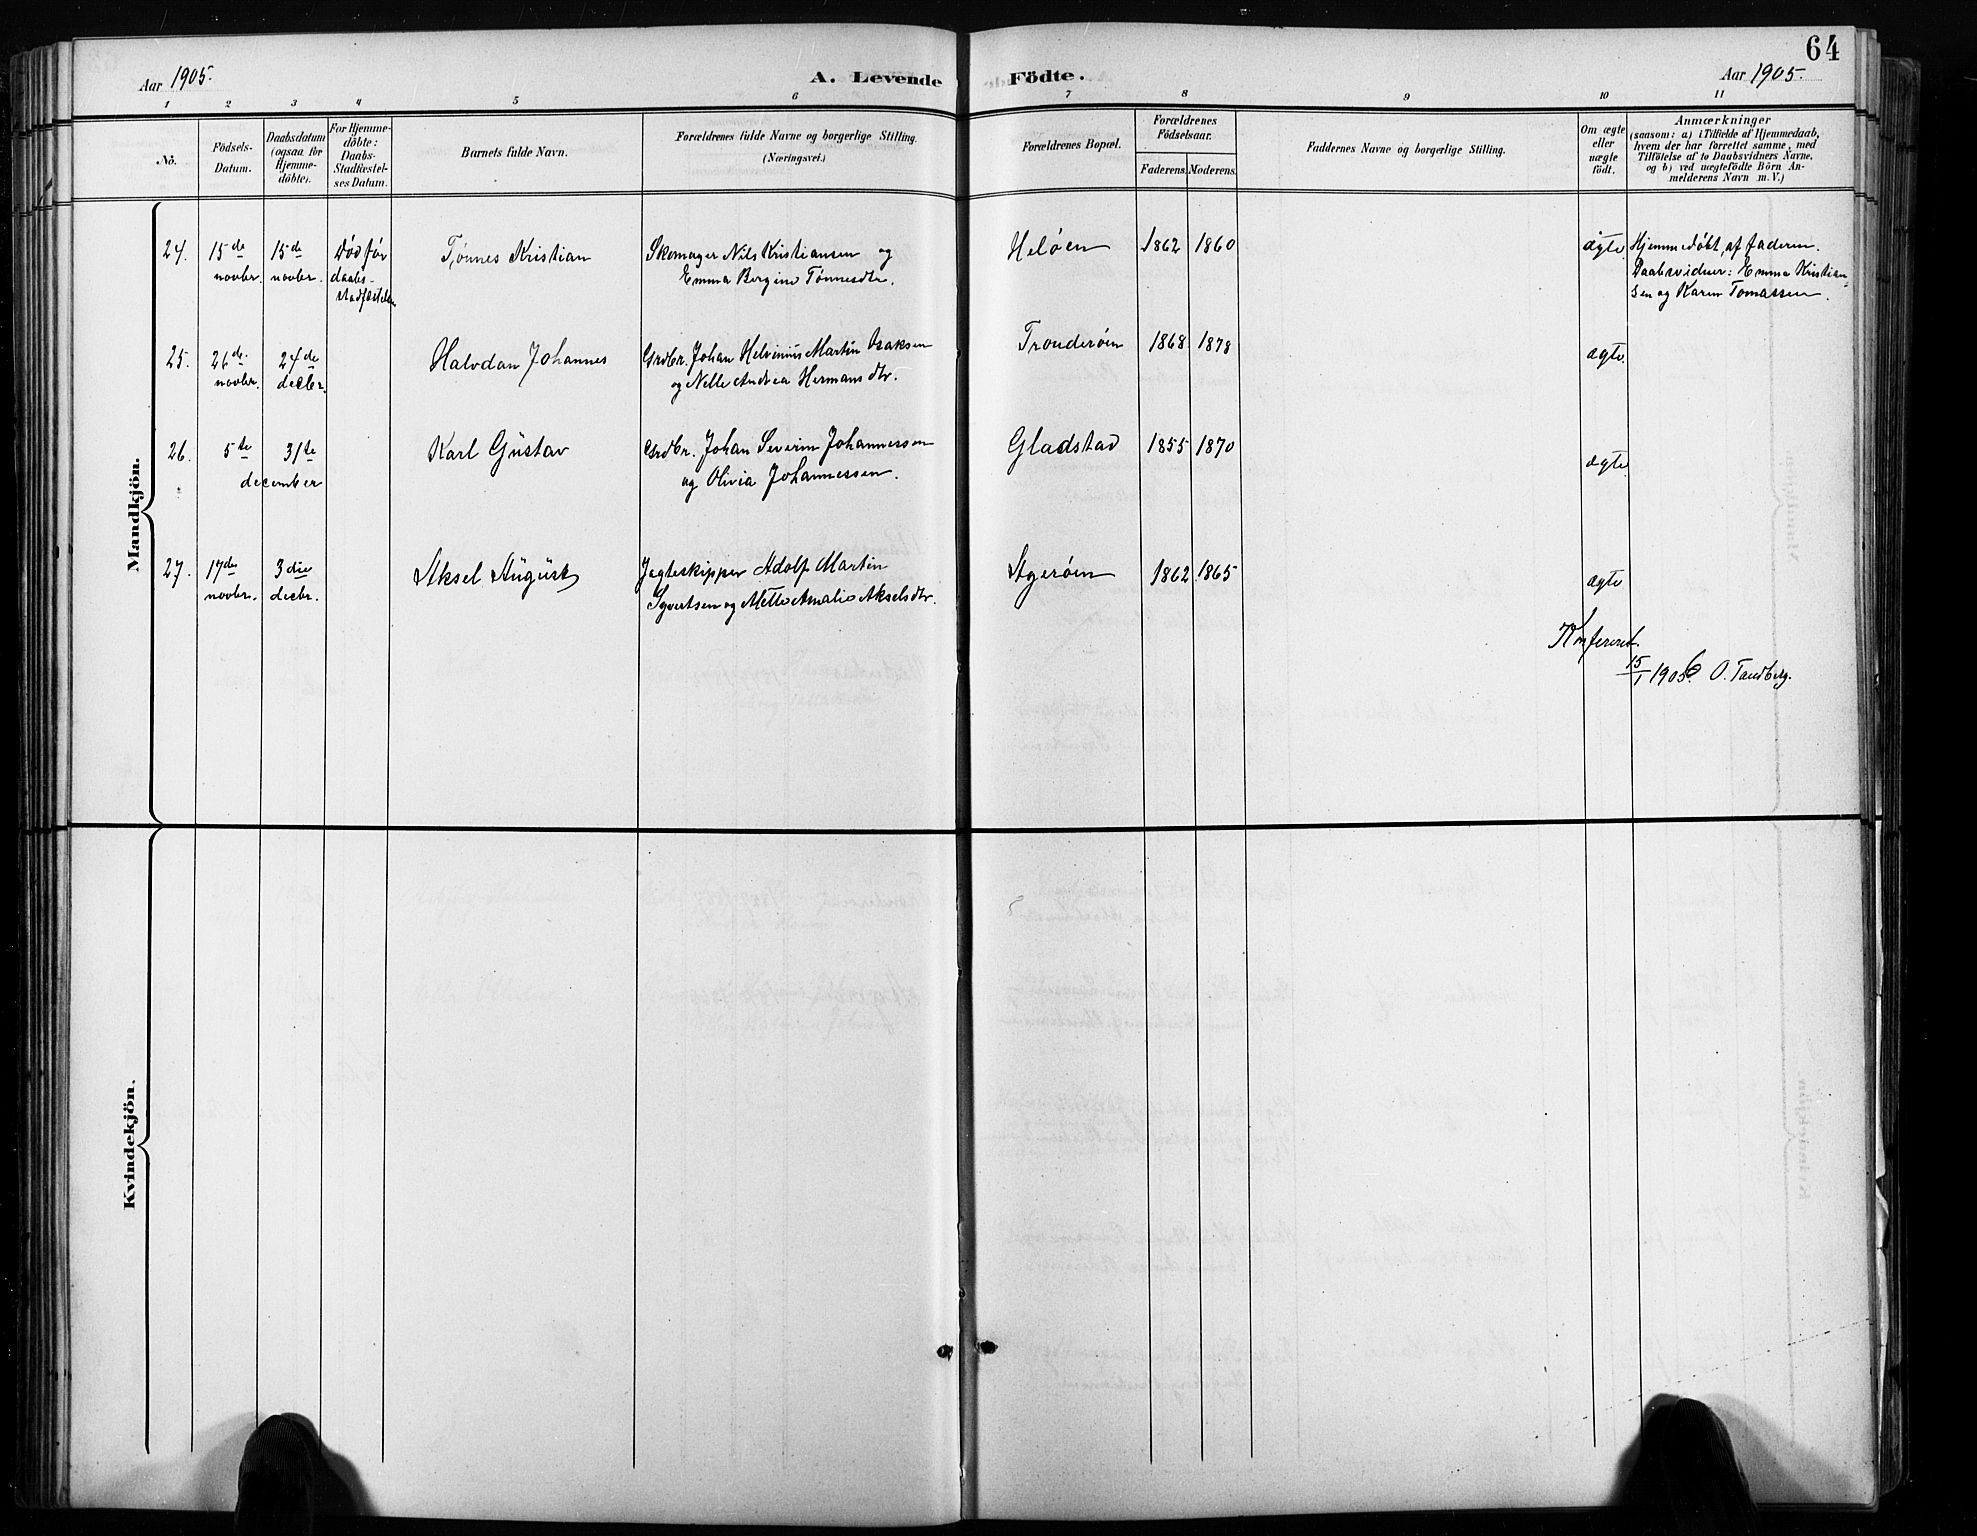 64
Aar 1905.
A. Levende Födte.
Aar 1905.
1 2 3 4 5 6 7 8 9 10 11
No.
Födsels-
Datum.
Daabsdatum
(ogsaa for
Hjemme-
döbte).
For Hjemme-
döbte:
Daabs-
Stadfæstel-
ses Datum.
Barnets fulde Navn.
Forældrenes fulde Navne og borgerlige Stilling.
(Næringsvei.)
Forældrenes Bopæl.
Forældrenes
Födselsaar.
Faderens. Moderens.
Faddernes Navne og borgerlige Stilling.
Om ægte
eller
uægte
födt.
Anmærkninger
(saasom: a) i Tilfælde af Hjemmedaab,
hvem der har forrettet samme, med
Tilföielse af to Daabsvidners Navne,
og b) ved uægtefödte Börn An-
melderens Navn m. V.)
Mandkjön.
24. 15de novbr. 15de novbr. Død før daabs-stadfæstelsen Tønnes Kristian Skomager Nils Kristiansen og
Emma Bergine Tønnesdtr.
Heløen 1862 1860 ægte
Hjemmedøbt af faderen.
Daabsvidner: Emma Kristian-
sen og Karen Tomassen.
25. 26de novbr. 24de decbr. Halvdan Johannes Grdbr. Johan Helvinius Martin Isaksen
og Nelle Andrea Hermansdtr.
Tronderøen 1868 1878 ægte
26. 5te 31te december Karl Gustav Grdbr. Johan Severin Johannessen
og Olivia Johannessen.
Gladstad 1855 1870 ægte
27. 17de novbr. 3die decbr. Aksel August Jagteskipper Adolf Martin
Syvertsen og Mette Amalie Akselsdtr.
Stgerøen 1862 1865 ægte
Konfereret.
15/1 1906 O. Tandberg.
Kvindekjön.